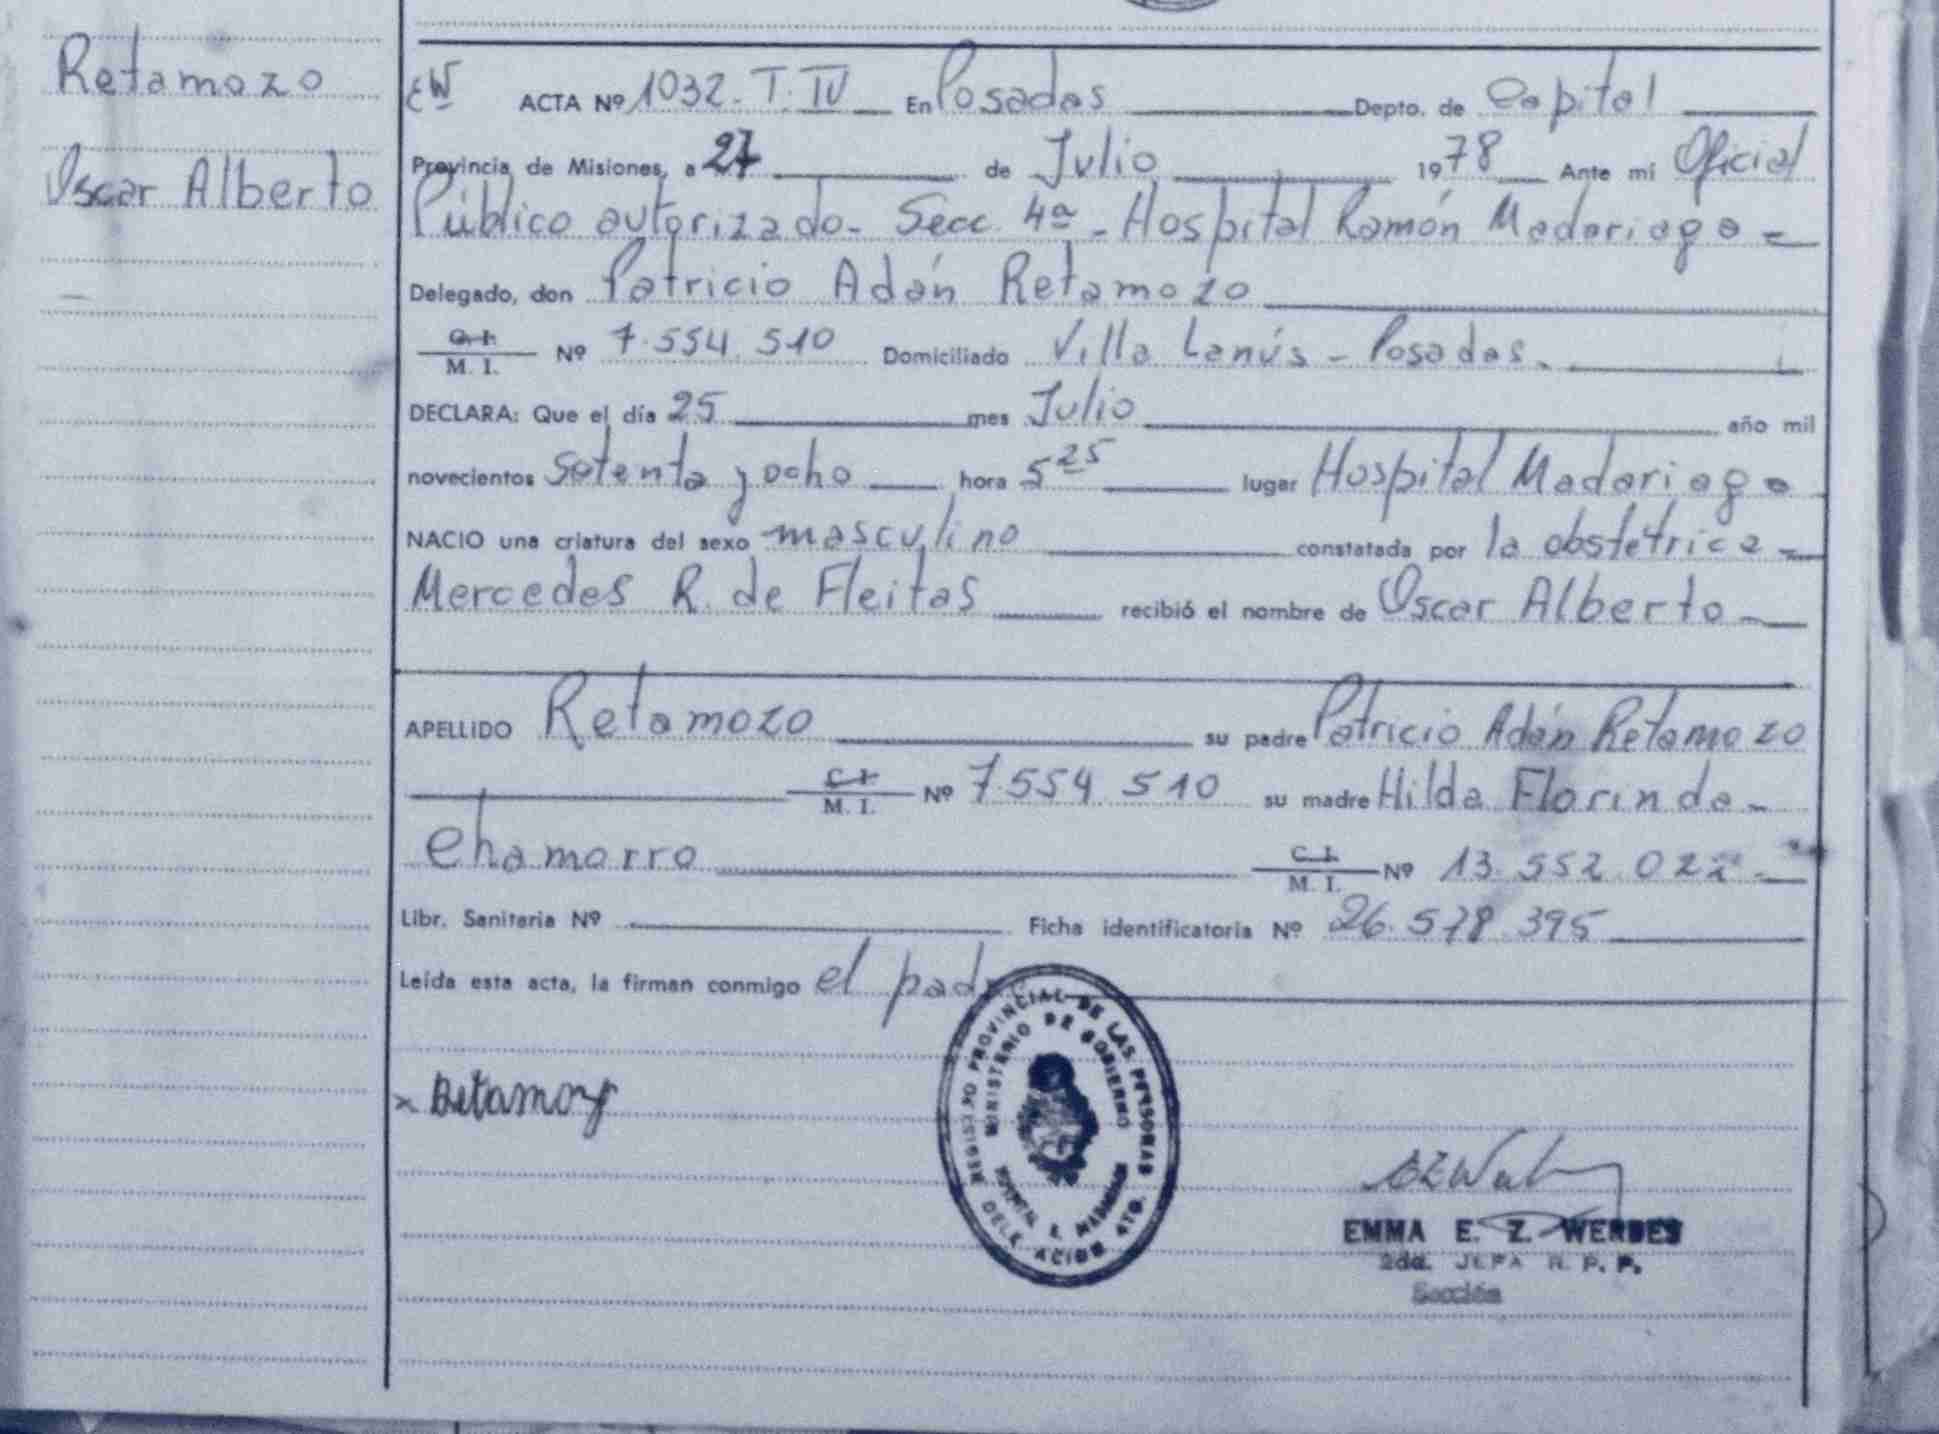 Retamozo
Oscar Alberto
EW ACTA Nº 1032. T. IV En Posadas Depto. de Capital
Provincia de Misiones, a 27 de Julio 1978 Ante mi Oficial
Público autorizado. Secc. 4ª - Hospital Ramón Madariaga
Delegado, don Patricio Adán Retamozo
C. I. M. I. Nº 7.554.510 Domiciliado Villa Lanús - Posadas.
DECLARA: Que el día 25 mes Julio año mil
novecientos setenta y ocho hora 5 25 lugar Hospital Madariaga
NACIO una criatura del sexo masculino constatada por la obstétrica
Mercedes R. de Fleitas recibió el nombre de Oscar Alberto
APELLIDO Retamozo su padre Patricio Adán Retamozo
C. I. M. I. Nº 7.554.510 su madre Hilda Florinda
Chamorro C. I. M. I. Nº 13.552.022
Libr. Sanitaria Nº Ficha identificatoria Nº 26.578.395
Leída esta acta, la firman conmigo el padre
x Retamozo
REGISTRO PROVINCIAL DE LAS PERSONAS
MINISTERIO DE GOBIERNO
EMMA E. Z. WERBES
2da. JEFA R. P. P.
Sección